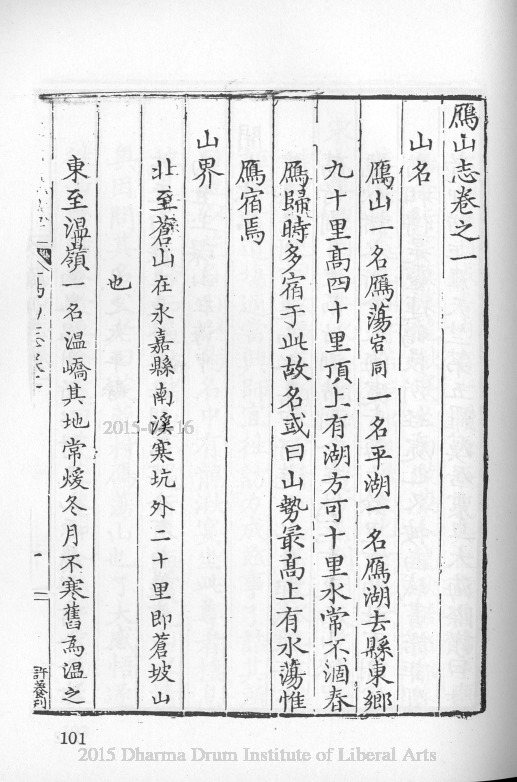 鴈山志卷之一
山名
鴈山一名鴈蕩宕同一名平湖一名鴈湖去縣東鄉
九十里高四十里頂上有湖方可十里水常不涸春
鴈歸時多宿于此故名或曰山勢最高上有水蕩惟
鴈宿焉
山界
北至蒼山在永嘉縣南溪寒坑外二十里即蒼坡山
也
東至溫嶺一名溫嶠其地常煖冬月不寒舊為溫之
一
101
2015 Dharma Drum Institute of Liberal Arts